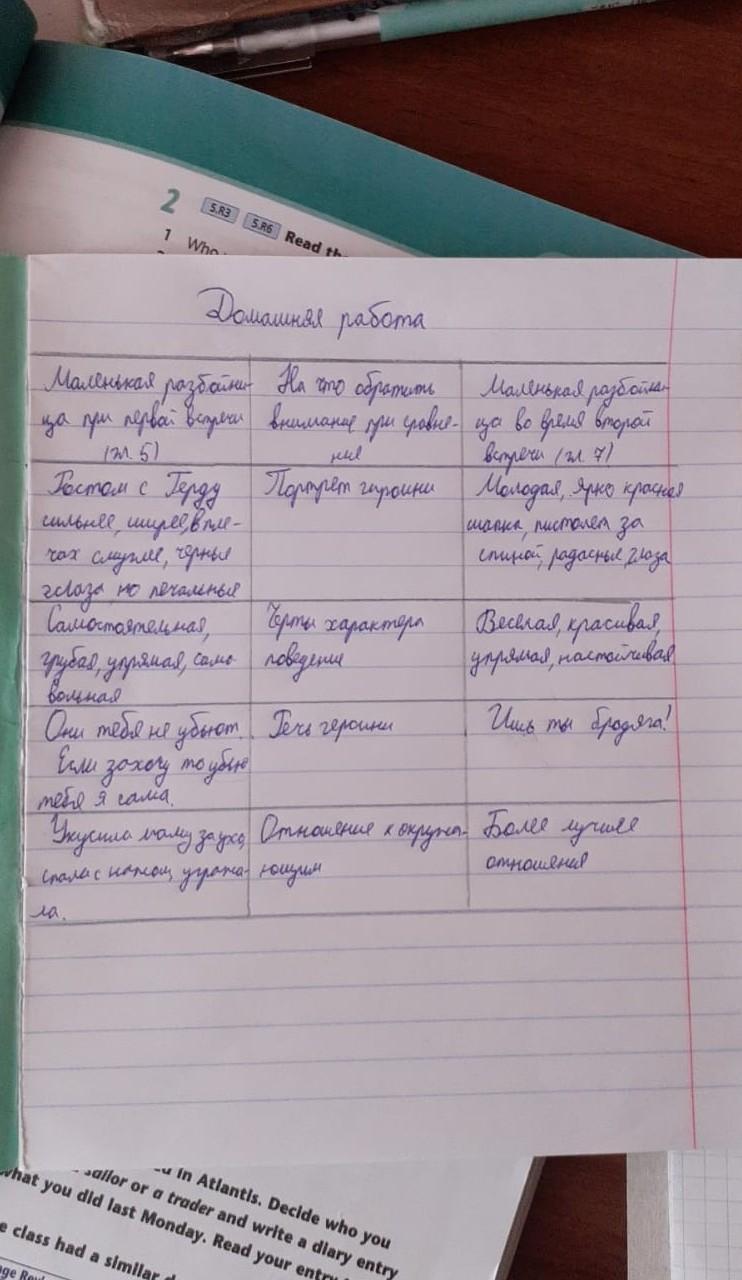 2 5.R3 5.R6 Read th
1 Who
Домашняя работа
Маленькая разбойни-
ца при первой встречи
(гл. 5)
На что обратить
внимание при сравне-
нии
Маленькая разбойни-
ца во время второй
встречи (гл. 7)
Ростом с Герду
сильнее, шире в пле-
чах смуглее, черные
глаза но печальные
Портрет героини
Молодая, ярко красная
шапка, пистолет за
спиной, радасные глаза
Самостоятельная,
грубая, упрямая, само
вольная
Черты характера
поведение
Веселая, красивая,
упрямая, настойчивая
Они тебя не убьют.
Если захочу то убью
тебя я сама.
Речь героини
Ишь ты бродяга!
Укусила маму за ухо,
спала с ножом, угрожа-
ла.
Отношение к окружа-
ющим
Более лучшее
отношения
in Atlantis. Decide who you
sailor or a trader and write a diary entry
what you did last Monday. Read your entry
e class had a similar d